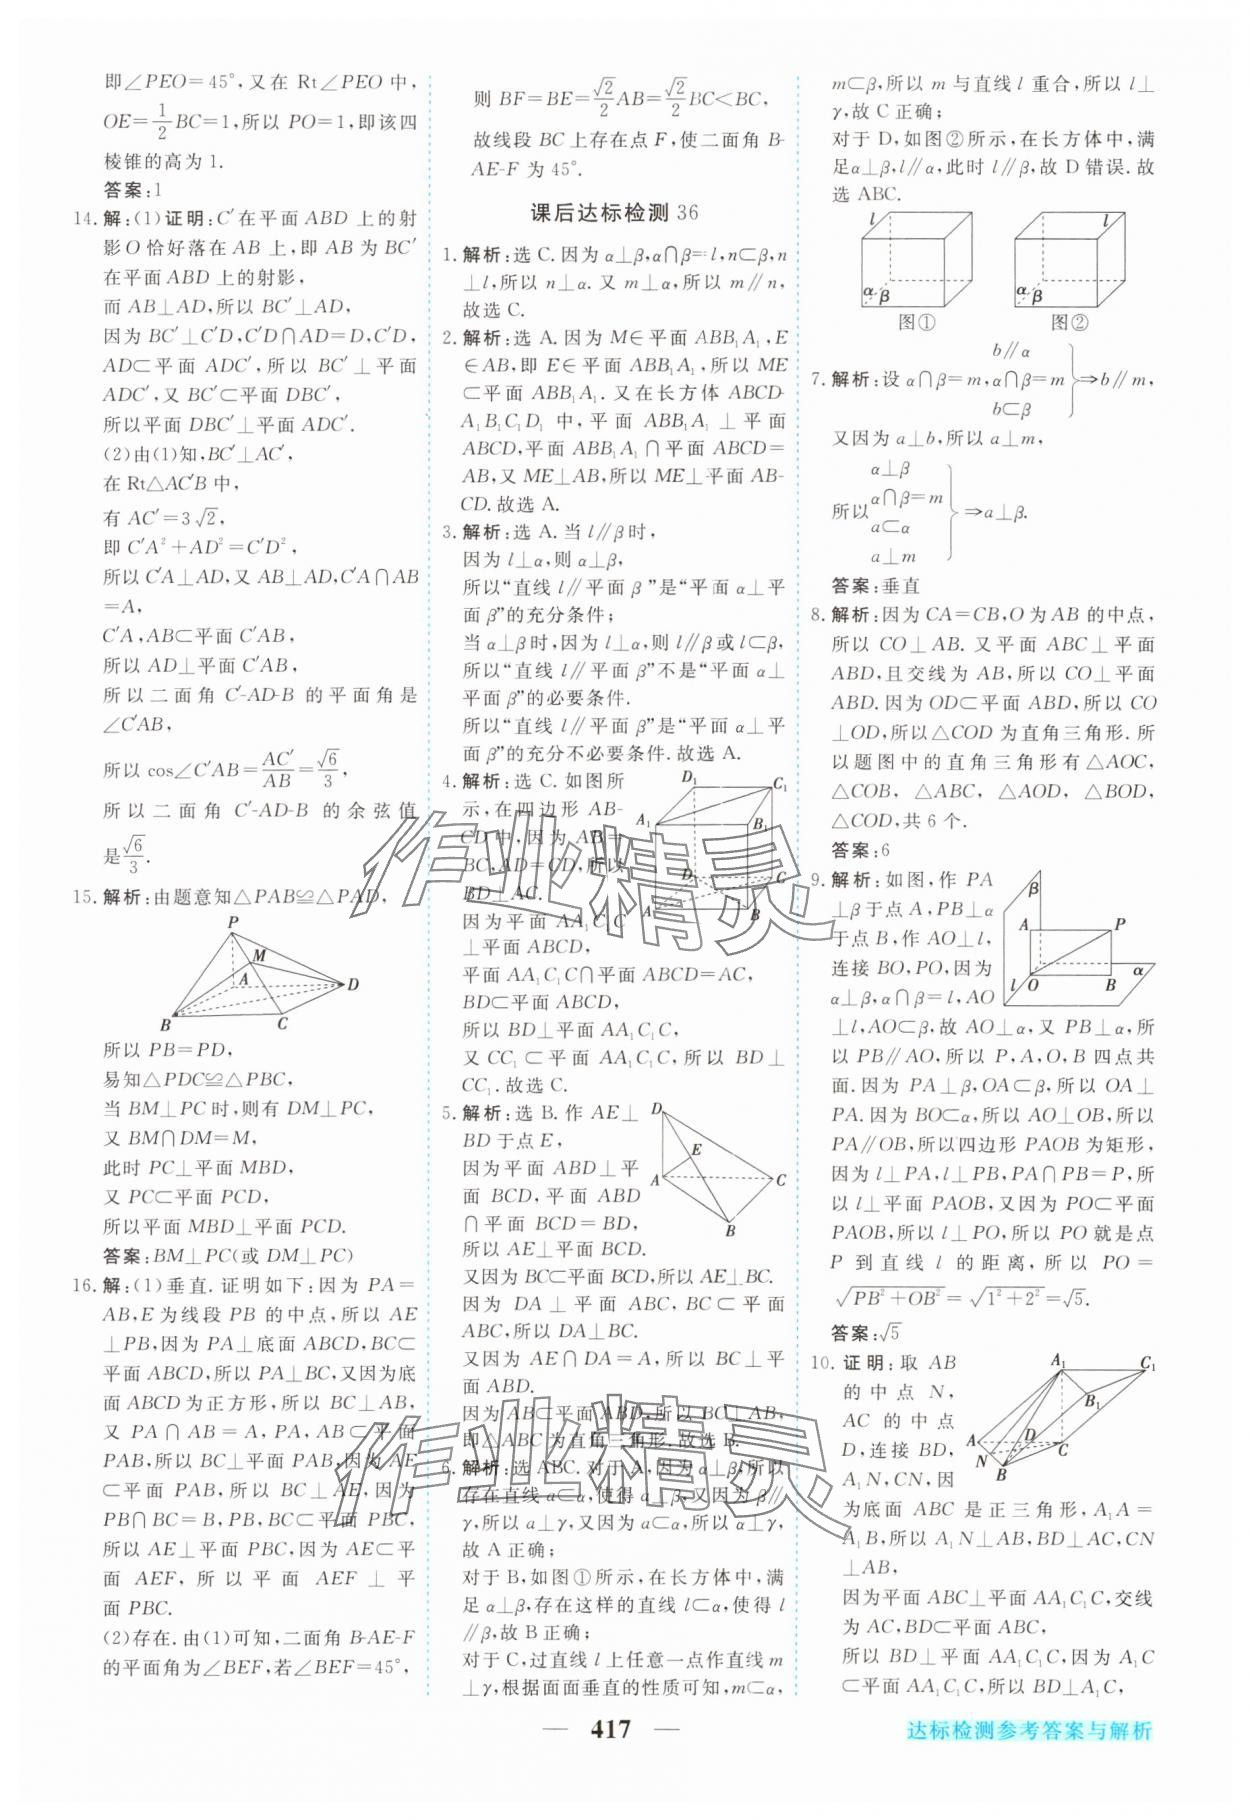 即∠PEO=45°,又在 Rt∠PEO 中,
OE=1/2BC=1,所以 PO=1,即该四
棱锥的高为 1.
答案:1
14.解:(1)证明:C′在平面 ABD 上的射
影O 恰好落在 AB 上,即 AB 为 BC′
在平面 ABD 上的射影,
而 AB⊥AD,所以 BC′⊥AD,
因为 BC′⊥C′D,C′D∩AD=D,C′D,
AD⊂平面 ADC′,所以 BC′⊥平面
ADC′,又 BC′⊂平面 DBC′,
所以平面 DBC′⊥平面 ADC′.
(2)由(1)知,BC′⊥AC′,
在 Rt△AC′B 中,
有 AC′=3√2,
即 C′A²+AD²=C′D²,
所以 C′A⊥AD,又 AB⊥AD,C′A∩AB
=A,
C′A,AB⊂平面 C′AB,
所以 AD⊥平面 C′AB,
所以二面角 C′-AD-B 的平面角是
∠C′AB,
所以 cos∠C′AB=AC′/AB=√6/3,
所以二面角 C′-AD-B 的余弦值
是√6/3.
15.解析:由题意知△PAB≌△PAD,
P
M
A
D
B
C
所以 PB=PD,
易知△PDC≌△PBC,
当 BM⊥PC 时,则有 DM⊥PC,
又 BM∩DM=M,
此时 PC⊥平面 MBD,
又 PC⊂平面 PCD,
所以平面 MBD⊥平面 PCD.
答案:BM⊥PC(或 DM⊥PC)
16.解:(1)垂直.证明如下:因为 PA=
AB,E 为线段 PB 的中点,所以 AE
⊥PB,因为 PA⊥底面 ABCD,BC⊂
平面 ABCD,所以 PA⊥BC,又因为底
面 ABCD 为正方形,所以 BC⊥AB,
又 PA∩AB=A,PA,AB⊂平面
PAB,所以 BC⊥平面 PAB,因为 AE
⊂平面 PAB,所以 BC⊥AE,因为
PB∩BC=B,PB,BC⊂平面 PBC,
所以 AE⊥平面 PBC,因为 AE⊂平
面 AEF,所以平面 AEF⊥平
面 PBC.
(2)存在.由(1)可知,二面角 B-AE-F
的平面角为∠BEF,若∠BEF=45°,
则 BF=BE=√2/2AB=√2/2BC<BC,
故线段 BC 上存在点 F,使二面角 B-
AE-F 为 45°.
课后达标检测 36
1.解析:选 C.因为 α⊥β,α∩β=l,n⊂β,n
⊥l,所以 n⊥α.又 m⊥α,所以 m∥n,
故选 C.
2.解析:选 A.因为 M∈平面 ABB₁A₁,E
∈AB,即 E∈平面 ABB₁A₁,所以 ME
⊂平面 ABB₁A₁.又在长方体 ABCD-
A₁B₁C₁D₁ 中,平面 ABB₁A₁⊥平面
ABCD,平面 ABB₁A₁∩平面 ABCD=
AB,又 ME⊥AB,所以 ME⊥平面 AB-
CD.故选 A.
3.解析:选 A.当 l∥β时,
因为 l⊥α,则 α⊥β,
所以“直线 l∥平面 β”是“平面 α⊥平
面 β”的充分条件;
当 α⊥β时,因为 l⊥α,则 l∥β或 l⊂β,
所以“直线 l∥平面 β”不是“平面 α⊥
平面 β”的必要条件.
所以“直线 l∥平面 β”是“平面 α⊥平
面 β”的充分不必要条件.故选 A.
4.解析:选 C.如图所
示,在四边形 AB-
CD中,因为 AB=
BC,AD=CD,所以
BD⊥AC.
因为平面 AA₁C₁C
⊥平面 ABCD,
平面 AA₁C₁C∩平面 ABCD=AC,
BD⊂平面 ABCD,
所以 BD⊥平面 AA₁C₁C,
又 CC₁⊂平面 AA₁C₁C,所以 BD⊥
CC₁.故选 C.
D₁
C₁
A₁
B₁
D
C
A
B
5.解析:选 B.作 AE⊥
BD 于点 E,
因为平面 ABD⊥平
面 BCD,平面 ABD
∩平面 BCD=BD,
所以 AE⊥平面 BCD.
又因为 BC⊂平面 BCD,所以 AE⊥BC.
因为 DA⊥平面 ABC,BC⊂平面
ABC,所以 DA⊥BC.
又因为 AE∩DA=A,所以 BC⊥平
面 ABD.
因为 AB⊂平面 ABD,所以 BC⊥AB,
即△ABC 为直角三角形.故选 B.
D
E
A
C
B
6.解析:选 ABC.对于 A,因为 α⊥β,所以
存在直线 a⊂α,使得 a⊥β,又因为 β∥
γ,所以 a⊥γ,又因为 a⊂α,所以 α⊥γ,
故 A 正确;
对于 B,如图①所示,在长方体中,满
足 α⊥β,存在这样的直线 l⊂α,使得 l
∥β,故 B 正确;
对于 C,过直线 l 上任意一点作直线 m
⊥γ,根据面面垂直的性质可知,m⊂α,
m⊂β,所以 m 与直线 l 重合,所以 l⊥
γ,故 C 正确;
对于 D,如图②所示,在长方体中,满
足α⊥β,l∥α,此时 l∥β,故 D 错误.故
选 ABC.
l
α
β
图①
l
α
β
图②
7.解析:设 α∩β=m,
b∥α
α∩β=m
b⊂β
⇒b∥m,
又因为 a⊥b,所以 a⊥m,
所以
α⊥β
α∩β=m
a⊂α
a⊥m
⇒a⊥β.
答案:垂直
8.解析:因为 CA=CB,O 为 AB 的中点,
所以 CO⊥AB.又平面 ABC⊥平面
ABD,且交线为 AB,所以 CO⊥平面
ABD.因为 OD⊂平面 ABD,所以 CO
⊥OD,所以△COD 为直角三角形.所
以题图中的直角三角形有△AOC,
△COB,△ABC,△AOD,△BOD,
△COD,共 6 个.
答案:6
9.解析:如图,作 PA
⊥β于点 A,PB⊥α
于点 B,作 AO⊥l,
连接 BO,PO,因为
α⊥β,α∩β=l,AO
⊥l,AO⊂β,故 AO⊥α,又 PB⊥α,所
以 PB∥AO,所以 P,A,O,B 四点共
面.因为 PA⊥β,OA⊂β,所以 OA⊥
PA.因为 BO⊂α,所以 AO⊥OB,所以
PA∥OB,所以四边形 PAOB 为矩形,
因为 l⊥PA,l⊥PB,PA∩PB=P,所
以 l⊥平面 PAOB,又因为 PO⊂平面
PAOB,所以 l⊥PO,所以 PO 就是点
P 到直线 l 的距离,所以 PO=
√(PB²+OB²)=√(1²+2²)=√5.
答案:√5
β
A
P
l
O
B
α
10.证明:取 AB
的中点 N,
AC 的中点
D,连接 BD,
A₁N,CN,因
为底面 ABC 是正三角形,A₁A=
A₁B,所以 A₁N⊥AB,BD⊥AC,CN
⊥AB,
因为平面 ABC⊥平面 AA₁C₁C,交线
为 AC,BD⊂平面 ABC,
所以 BD⊥平面 AA₁C₁C,因为 A₁C
⊂平面 AA₁C₁C,所以 BD⊥A₁C,
A₁
C₁
B₁
A
D
C
N
B
作业精灵
作业精灵
417
达标检测参考答案与解析